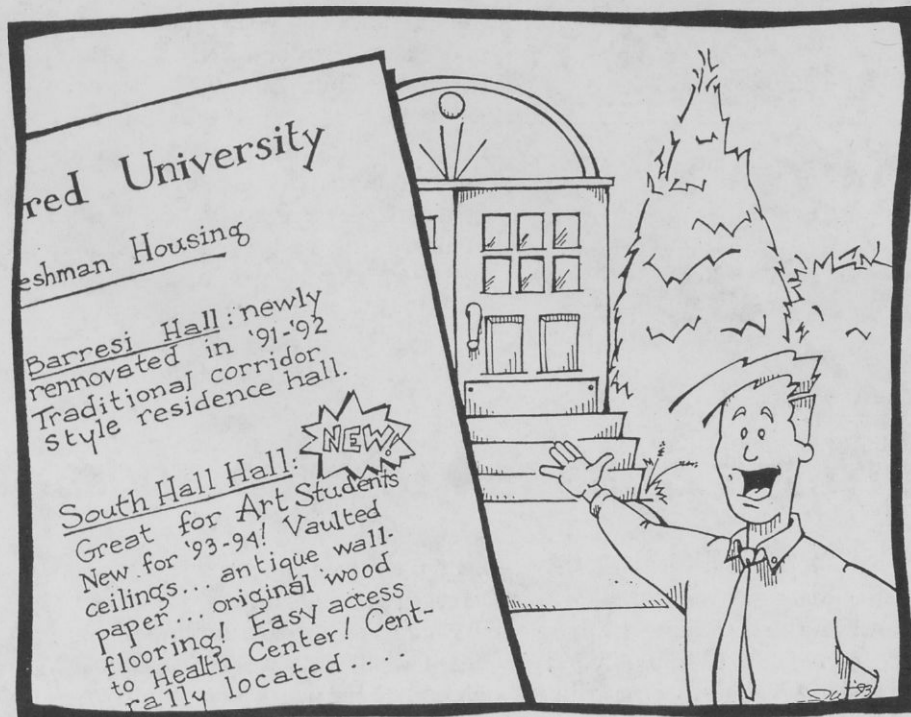 red University
eshman Housing
Barresi Hall: newly
rennovated in '91-'92
Traditional corridor
style residence hall.
NEW!
South Hall Hall:
Great for Art Students
New for '93-94! Vaulted
ceilings... antique wall-
paper... original wood
flooring! Easy access
to Health Center! Cent-
rally located....
'93